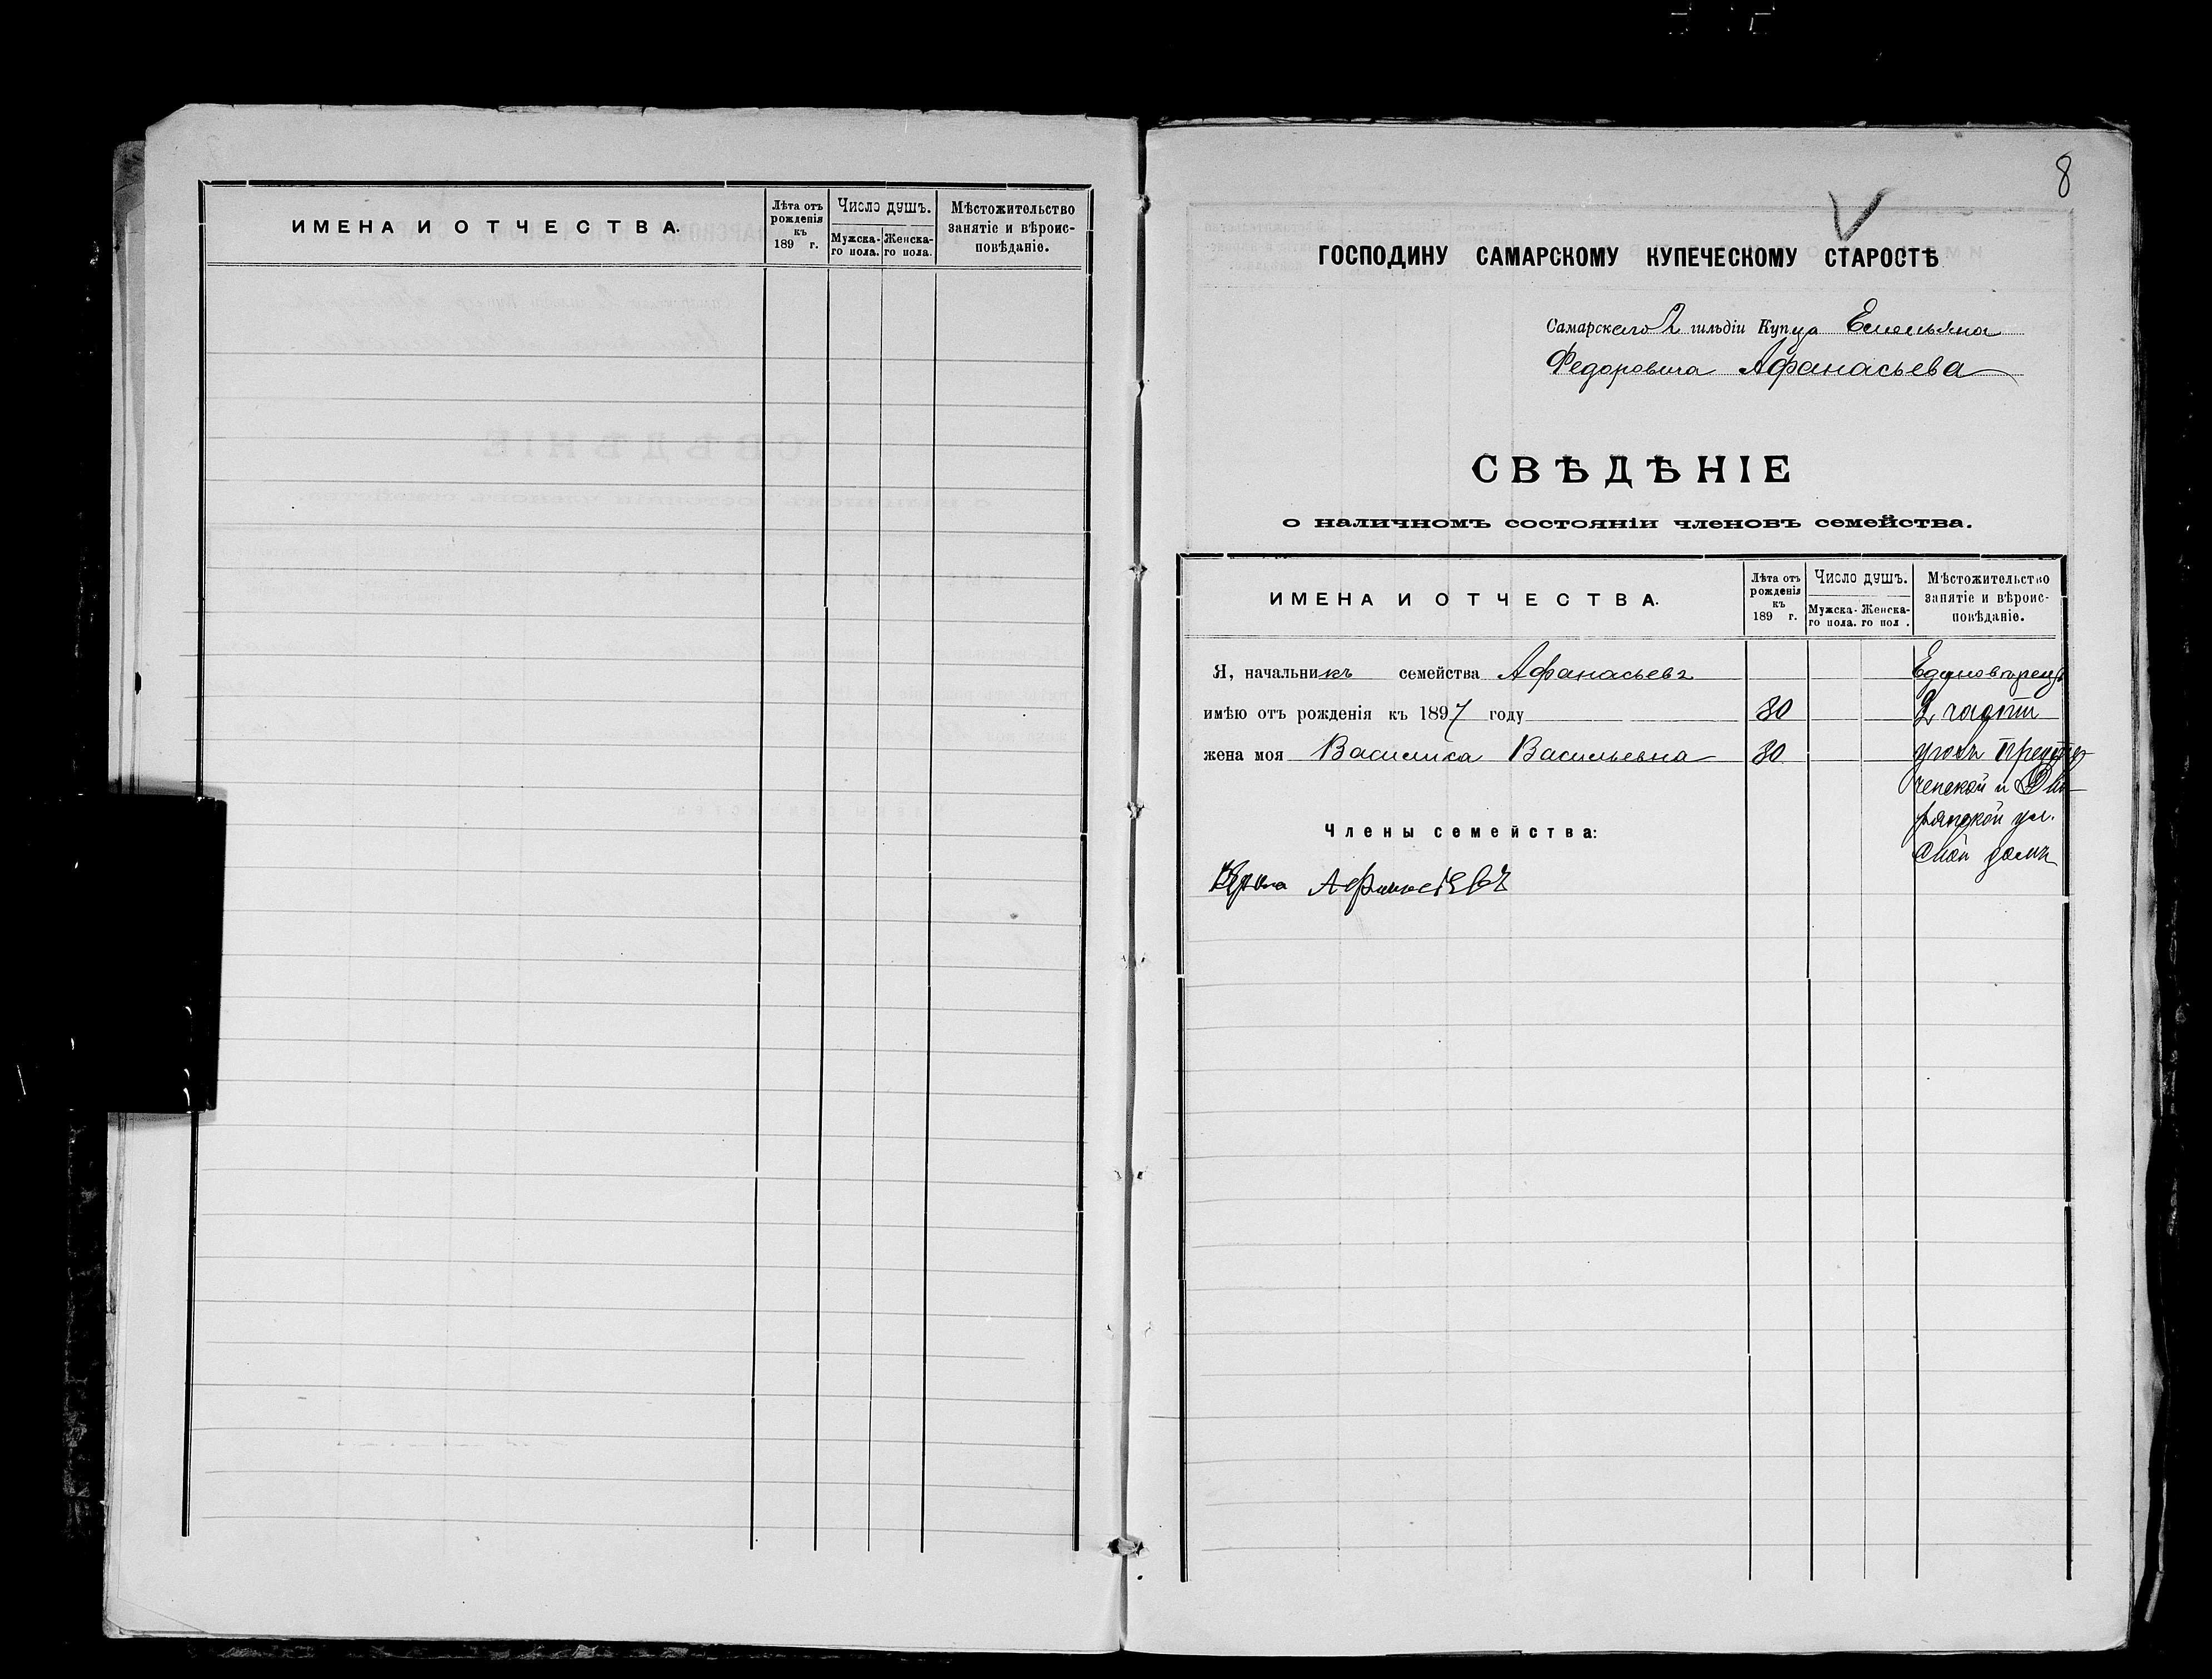 ИМЕНА И ОТЧЕСТВА.
Лѣта отъ рожденія къ 189 г.
Число душъ.
Мужска-го пола.
Женска-го пола.
Мѣстожительство занятіе и вѣроис-повѣданіе.
8
ГОСПОДИНУ САМАРСКОМУ КУПЕЧЕСКОМУ СТАРОСТѢ
Самарскаго 2 гильдіи Купца Емельяна
Федоровича Афанасьева
СВѢДѢНІЕ
о наличномъ состояніи членовъ семейства.
ИМЕНА И ОТЧЕСТВА.
Лѣта отъ рожденія къ 189 г.
Число душъ.
Мужска-го пола.
Женска-го пол .
Мѣстожительство занятіе и вѣроис-повѣданіе.
Я, начальникъ семейства Афанасьевъ
Единоверецъ
имѣю отъ рожденія къ 1897 году 80 2 части
жена моя Васильевна 80 уголъ Предте
ченской и
ул.
Члены семейства:
Свой домъ